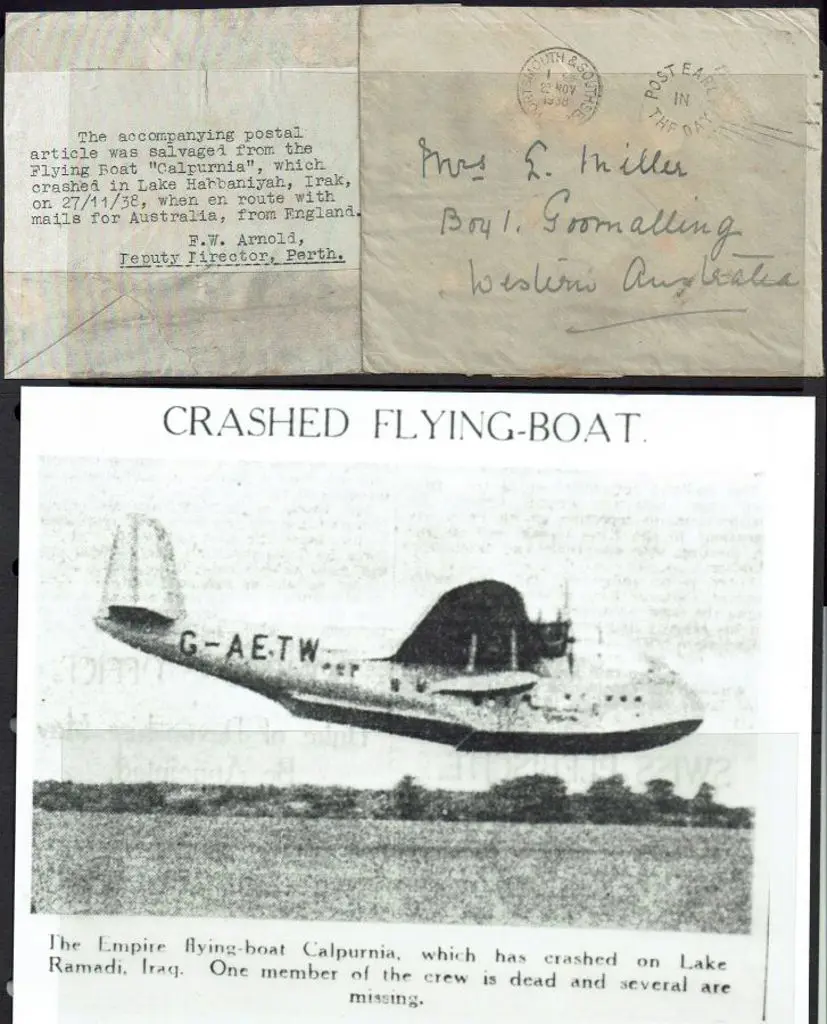 The accompanying postal
article was salvaged from the
Flying Boat "Calpurnia", which
crashed in Lake Habbaniyah, Irak,
on 27/11/38, when en route with
mails for Australia, from England.
F.W. Arnold,
Deputy Director, Perth.
PORTSMOUTH & SOUTHSEA
22 NOV
1938
POST EARLY
IN
THE DAY
Mrs E. Miller
Box 1. Goomalling
Western Australia
CRASHED FLYING-BOAT.
G-AETW
The Empire flying-boat Calpurnia, which has crashed on Lake
Ramadi, Iraq. One member of the crew is dead and several are
missing.